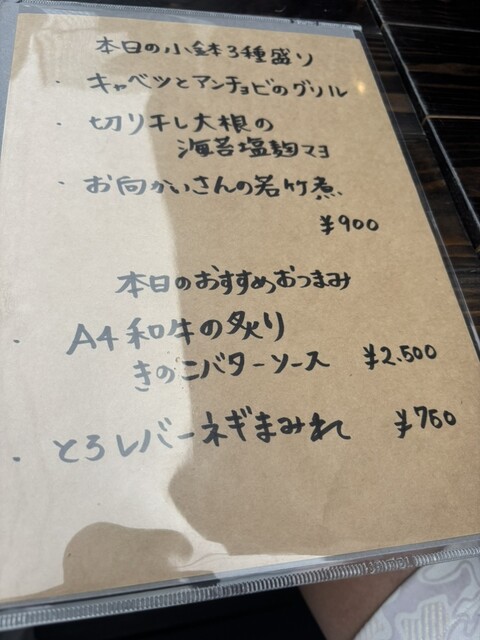 本日の小鉢3種盛り
・キャベツとアンチョビのグリル
・切り干し大根の
海苔塩麹マヨ
・お向かいさんの若竹煮
¥900
本日のおすすめおつまみ
・A4和牛の炙り
きのこバターソース ¥2.500
・とろレバーネギまみれ ¥750